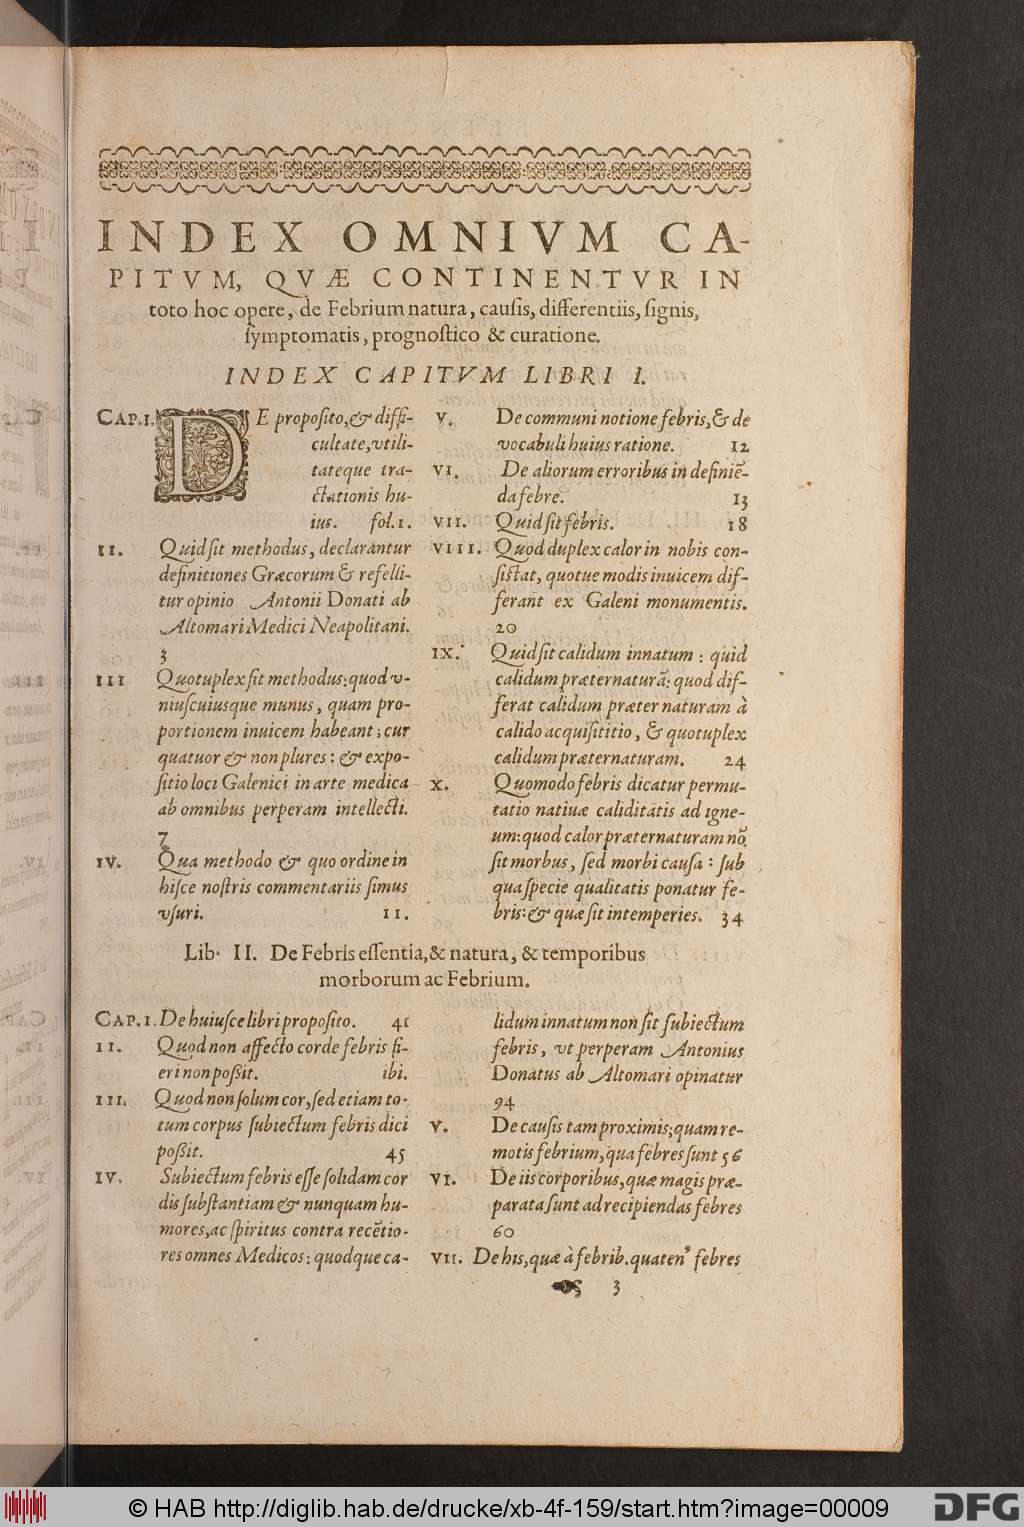 INDEX OMNIVM CA-
PITVM, QVÆ CONTINENTVR IN
toto hoc opere, de Febrium natura, cauſis, differentiis, ſignis,
ſymptomatis, prognoſtico & curatione.
INDEX CAPITVM LIBRI I.
CAP. I. DE propoſito, & diffi-
cultate, vtili-
tateque tra-
ctationis hu-
ius. fol. 1.
II. Quid ſit methodus, declarantur
definitiones Græcorum & refelli-
tur opinio Antonii Donati ab
Altomari Medici Neapolitani.
3
III Quotuplex ſit methodus: quod v-
niuſcuiusque munus, quam pro-
portionem inuicem habeant; cur
quatuor & non plures: & expo-
ſitio loci Galenici in arte medica
ab omnibus perperam intellecti.
7
IV. Qua methodo & quo ordine in
hiſce noſtris commentariis ſimus
vſuri. 11.
V. De communi notione febris, & de
vocabuli huius ratione. 12
VI. De aliorum erroribus in definiē-
da febre. 13
VII. Quid ſit febris. 18
VIII. Quod duplex calor in nobis con-
ſiſtat, quotue modis inuicem dif-
ferant ex Galeni monumentis.
20
IX. Quid ſit calidum innatum: quid
calidum præternaturā: quod dif-
ferat calidum præter naturam à
calido acquiſititio, & quotuplex
calidum præternaturam. 24
X. Quomodo febris dicatur permu-
tatio natiuæ caliditatis ad igne-
um: quod calor præternaturam nō
ſit morbus, ſed morbi cauſa: ſub
qua ſpecie qualitatis ponatur fe-
bris: & quæ ſit intemperies. 34
Lib. II. De Febris eſſentia, & natura, & temporibus
morborum ac Febrium.
CAP. I. De huiuſce libri propoſito. 41
II. Quod non affecto corde febris fi-
eri non poßit. ibi.
III. Quod non ſolum cor, ſed etiam to-
tum corpus ſubiectum febris dici
poßit. 45
IV. Subiectum febris eſſe ſolidam cor
dis ſubſtantiam & nunquam hu-
mores, ac ſpiritus contra recētio-
res omnes Medicos: quodque ca-
lidum innatum non ſit ſubiectum
febris, vt perperam Antonius
Donatus ab Altomari opinatur
94
V. De cauſis tam proximis; quam re-
motis febrium, qua febres ſunt 56
VI. De iis corporibus, quæ magis præ-
parata ſunt ad recipiendas febres
60
VII. De his, quæ à febrib. quaten⁹ febres
3
© HAB http://diglib.hab.de/drucke/xb-4f-159/start.htm?image=00009
DFG